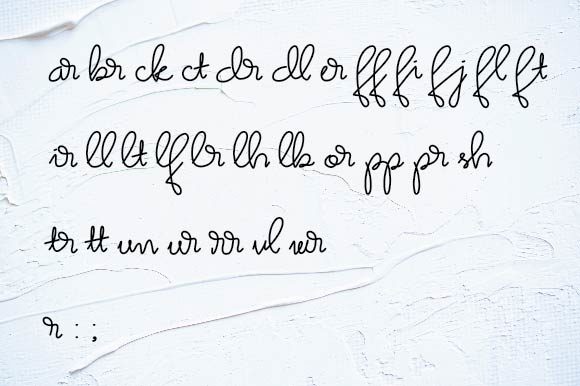 ar br ck ct dr dl er ff fi fj fl ft
ir ll lt lf lr lh lb or pp pr sh
tr tt un ur rr ul
r : ;